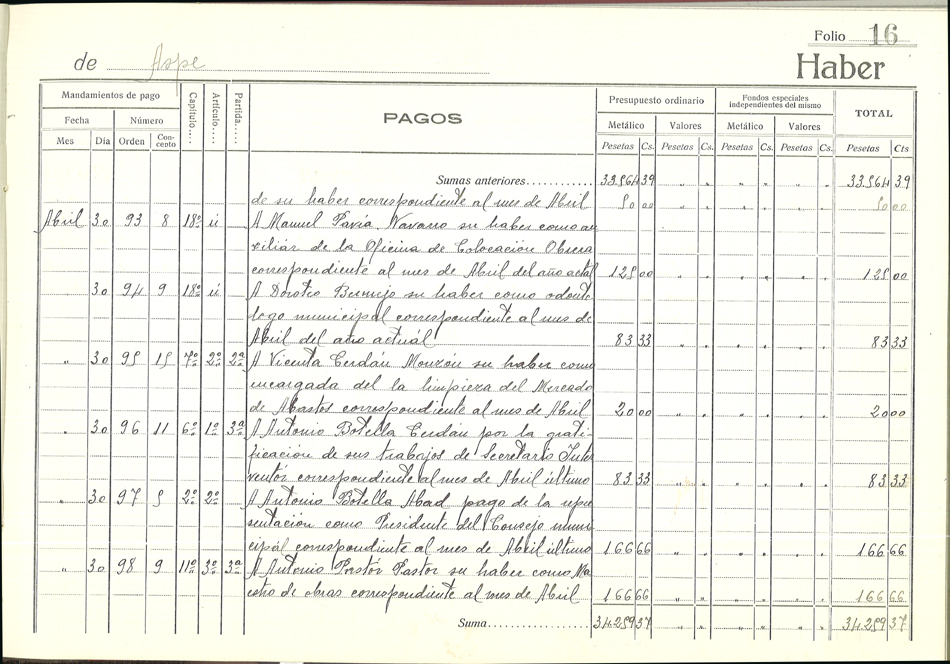 Folio 16
de Aspe
Haber
Mandamientos de pago Capítulo.... Artículo.... Partida.... PAGOS Presupuesto ordinario Fondos especiales independientes del mismo TOTAL
Fecha Número Metálico Valores Metálico Valores
Mes Día Orden Concepto Pesetas Cs. Pesetas Cs. Pesetas Cs. Pesetas Cs. Pesetas Cts
Sumas anteriores............ 33.564 39 " " " " " " 33.564 39
de su haber correspondiente al mes de Abril 50 00 " " " " " " 50 00
Abril 30 93 8 18º ú A Manuel Pavía Navarro su haber como au
xiliar de la Oficina de Colocación Obrera
correspondiente al mes de Abril del año actal 125 00 " " " " " " 125 00
30 94 9 18º ú A Doroteo Bermejo su haber como odontó
logo municipal correspondiente al mes de
Abril del año actuál 83 33 " " " " " " 83 33
" 30 95 15 7º 2º 2ª A Vicenta Cerdán Monzón su haber como
encargada del la limpieza del Mercado
de Abastos correspondiente al mes de Abril 20 00 " " " " " " 20 00
" 30 96 11 6º 1º 3ª A Antonio Botella Cerdán por la grati-
ficación de sus trabajos de Secretario Inter
ventór correspondiente al mes de Abril último 83 33 " " " " " " 83 33
" 30 97 5 2º 2º A Antonio Botella Abad pago de la repre
sentación como Presidente del Consejo muni
cipál correspondiente al mes de Abril último 166 66 " " " " " " 166 66
" 30 98 9 11º 3º 3ª A Antonio Pastor Pastor su haber como Ma
estro de obras correspondiente al mes de Abril 166 66 " " " " " " 166 66
Suma.................. 34.259 37 " " " " " " 34.259 37